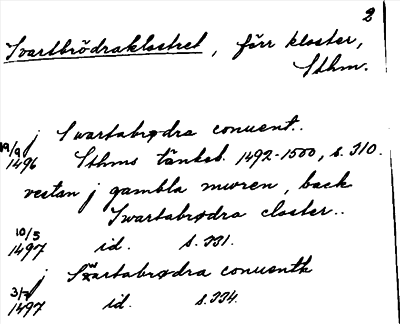 2
Svartbrödraklostret, förr kloster,
Sthm.
j Swartabrødra conuent..
19/9 1496 Sthms tänkeb. 1492-1500, s. 310.
vestan j gambla mwren, back
Swartabrodra closter..
10/5 1497 id. s. 331.
j Swartabrødra conuentk
3/7 1497 id. s. 334.